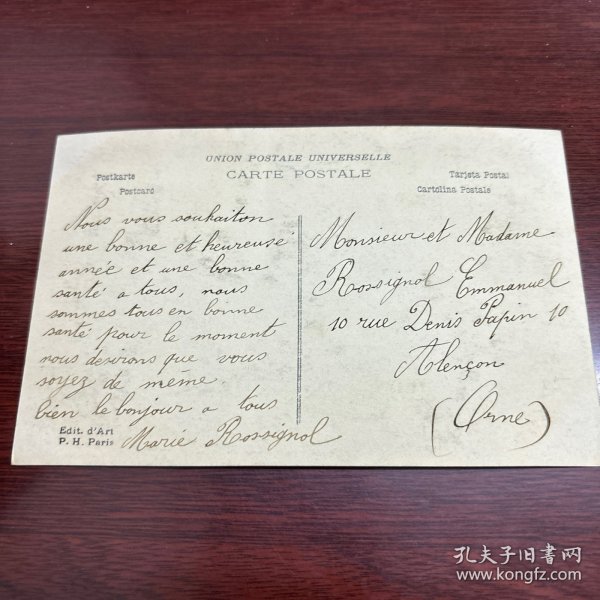 UNION POSTALE UNIVERSELLE
CARTE POSTALE
Postkarte
Postcard
Tarjeta Postal
Cartolina Postale
Nous vous souhaiton
une bonne et heureuse
année et une bonne
santé a tous, nous
sommes tous en bonne
santé pour le moment
nous desirons que vous
soyez de même.
bien le bonjour a tous
Marie Rossignol
Edit. d'Art
P. H. Paris
Monsieur et Madame
Rossignol Emmanuel
10 rue Denis Papin 10
Alençon
(Orne)
孔夫子旧书网
www.kongfz.com